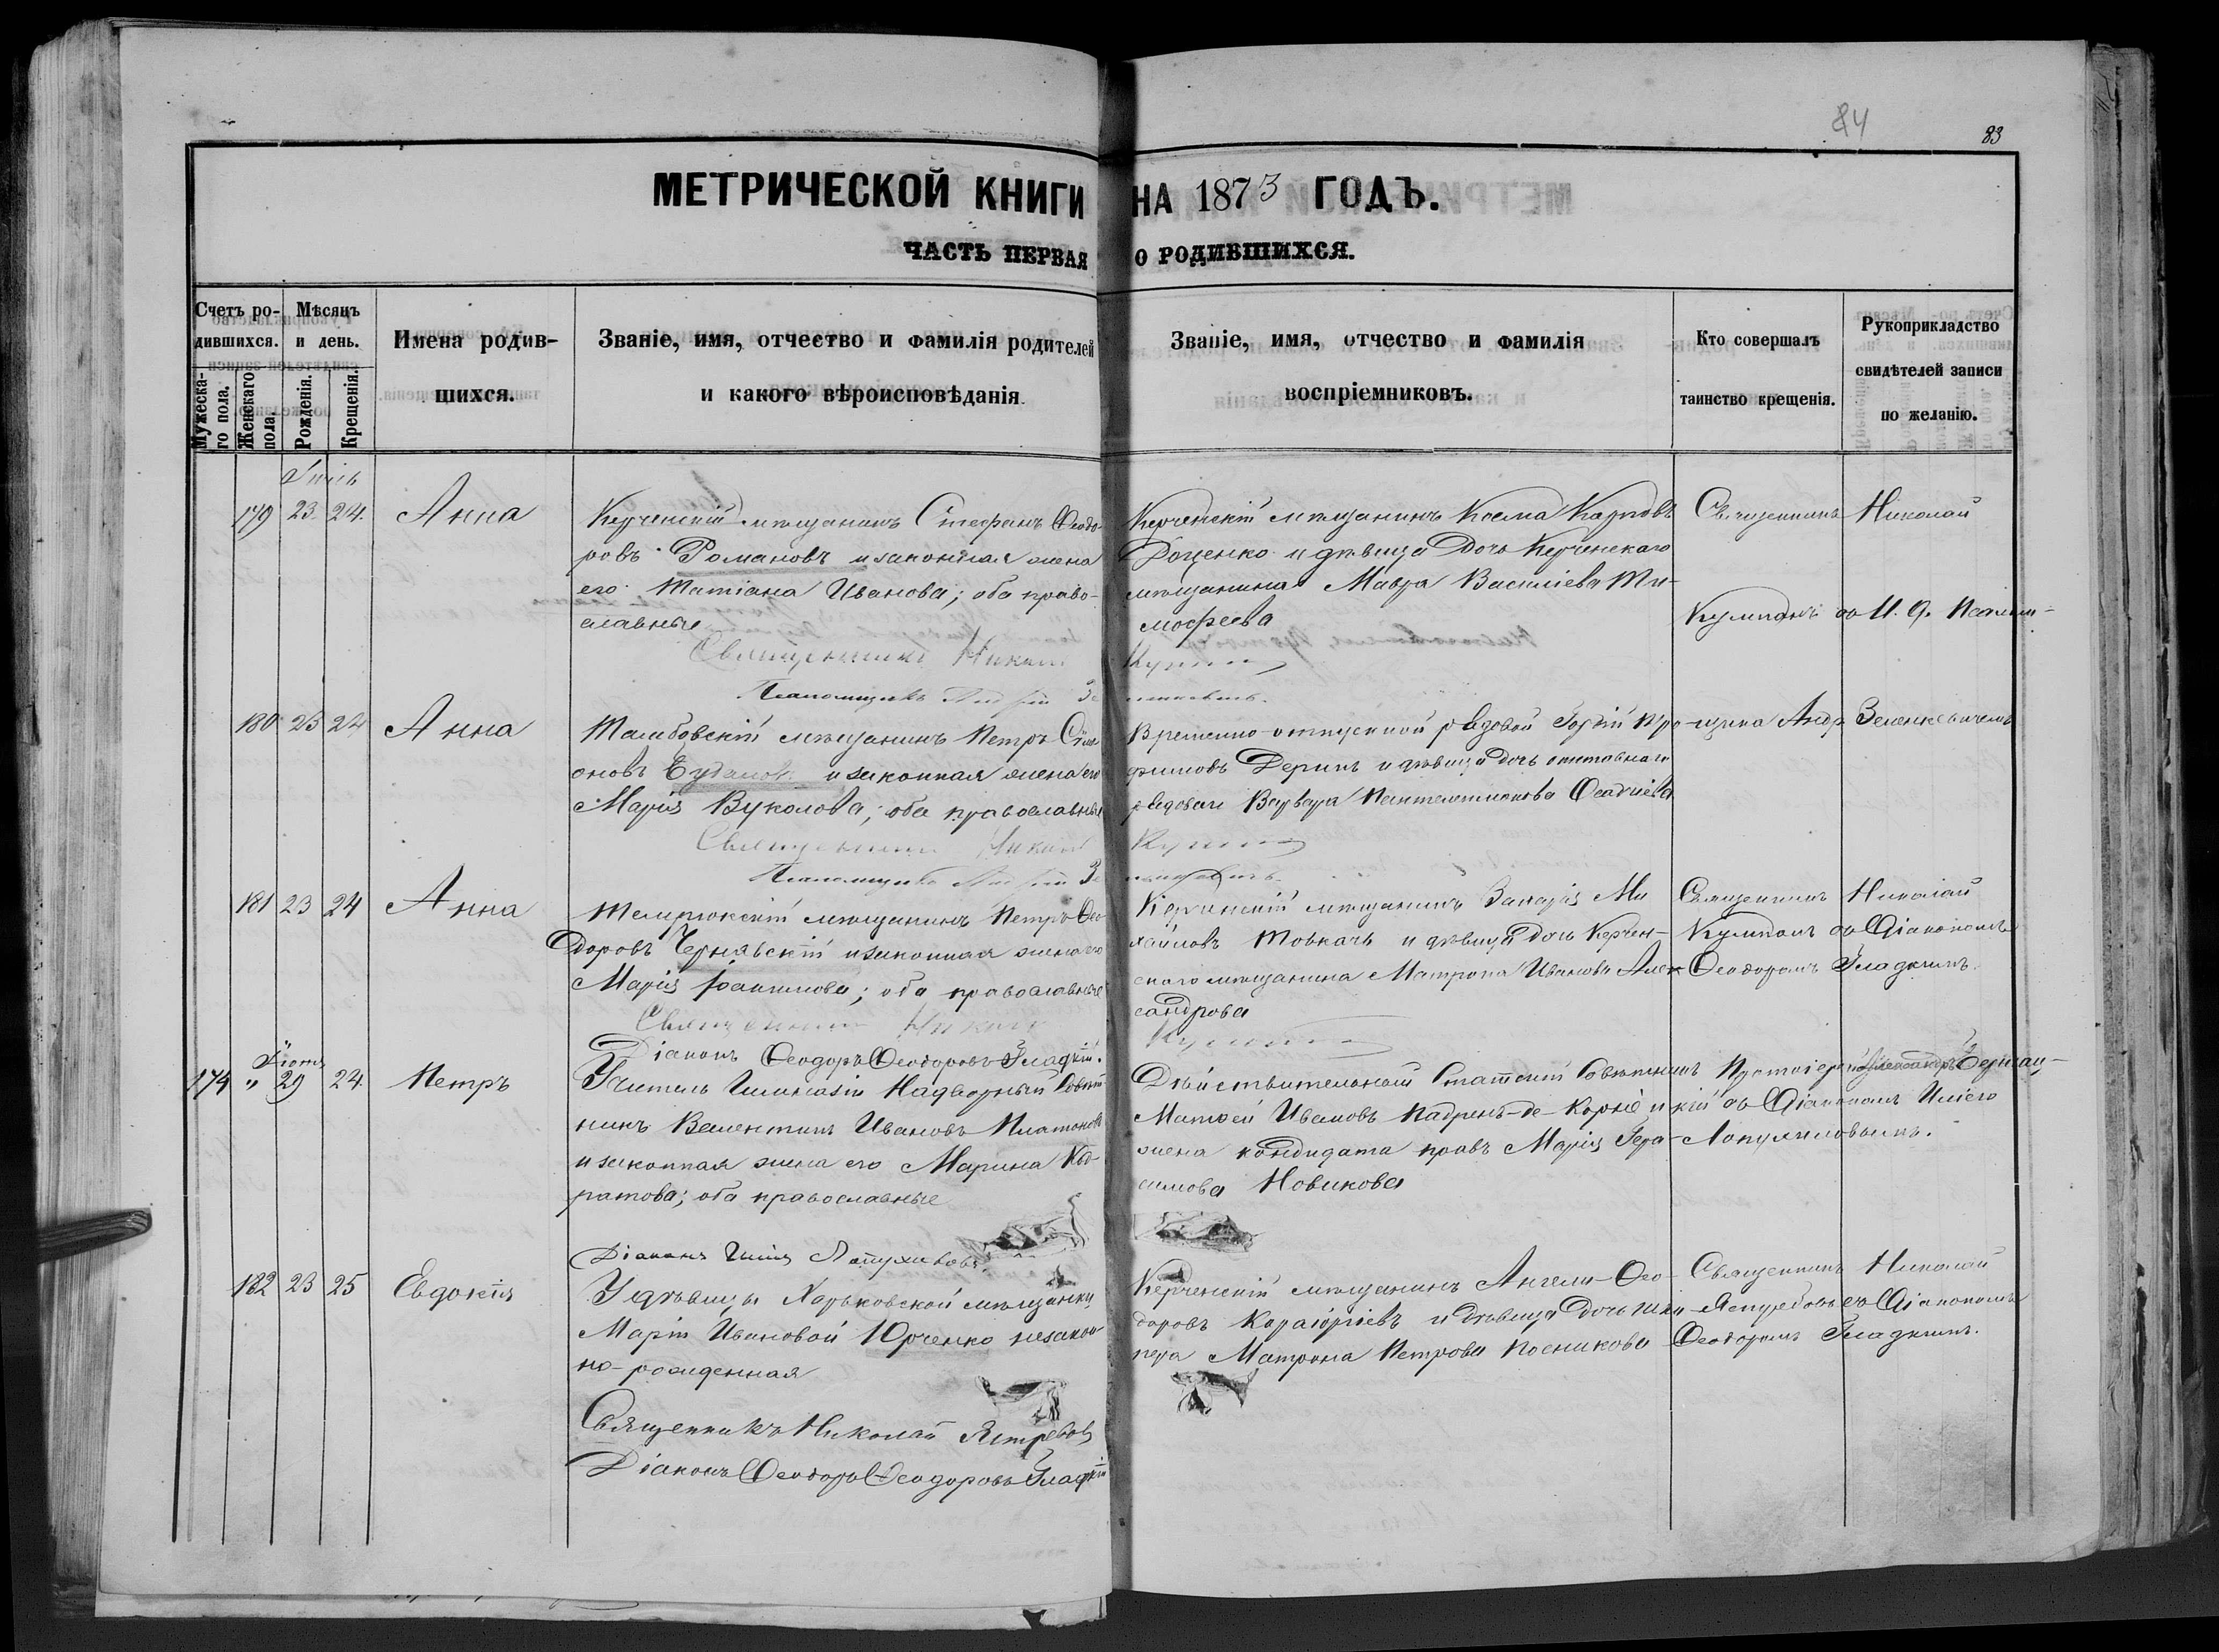 84
83
МЕТРИЧЕСКОЙ КНИГИ НА 1873 ГОДЪ.
ЧАСТЬ ПЕРВАЯ О РОДИВШИХСЯ.
Счетъ ро-
дившихся.
Мужеска-
го пола.
Женскаго
пола.
Мѣсяцъ
и день.
Рожденія.
Крещенія.
Имена родив-
шихся.
Званіе, имя, отчество и фамилія родителей
и какого вѣроисповѣданія
Званіе, имя, отчество и фамилія
воспріемниковъ.
Кто совершалъ
таинство крещенія.
Рукоприкладство
свидѣтелей записи
по желанію.
179 23. 24. Анна
Керченскій мѣщанинъ Стефанъ Ѳеодо-
ровъ Романовъ и законная жена
его Татіана Иванова; оба право-
славные
Керченскій мѣщанинъ Косма Карповъ
Доценко и дѣвица дочь Керченскаго
мѣщанина Мавра Василіева Ти-
мофеева
Священникъ Николай
Священникъ
180 23 24 Анна
Тамбовскій мѣщанинъ Петръ Сим-
оновъ и законная жена его
Марія Вуколова; оба православные
Временно-отпускной рядовой
Деринъ и дѣвица дочь отставнаго
рядоваго Варвара Пантелеимонова
Андр Зеленкевичемъ
181 23 24 Анна
Темрюкскій мѣщанинъ Петръ Ѳео-
доровъ Чернявскій и законная жена его
Марія; оба православные
Священникъ
Діаконъ Ѳеодоръ Ѳеодоровъ Гладкій.
Керченскій мѣщанинъ Захарія Ми-
хайловъ Товкачъ и дѣвица дочь Керчен-
скаго мѣщанина Матрона Иванова Алек-
сандрова
Священникъ Николай
съ Діакономъ
Ѳеодоромъ Гладкимъ.
174 " 29 24. Петръ
Учитель Гимназіи Надворный Совѣт-
никъ Валентинъ Ивановъ Платоновъ
и законная жена его Марина
; оба православные
Діаконъ Илія Лопухиновъ.
Дѣйствительный Статскій Совѣтникъ
Матѳей Ивановъ Падренъ-де-Карне и
жена кандидата правъ Марія Гера-
симова Новикова
съ Діакономъ Иліею
Лопухиновымъ.
182 23 25 Евдокія
У дѣвицы Харьковской мѣщанки
Маріи Ивановой Юрченко незакон-
но-рожденная
Священникъ Николай Ястребовъ
Діаконъ Ѳеодоръ Ѳеодоровъ Гладкій
Керченскій мѣщанинъ Ангели Ѳео-
доровъ Карагіоргіевъ и дѣвица дочь шки-
пера Матрона Петрова Посникова
Священникъ Николай
Ястребовъ съ Діакономъ
Ѳеодоромъ Гладкимъ.